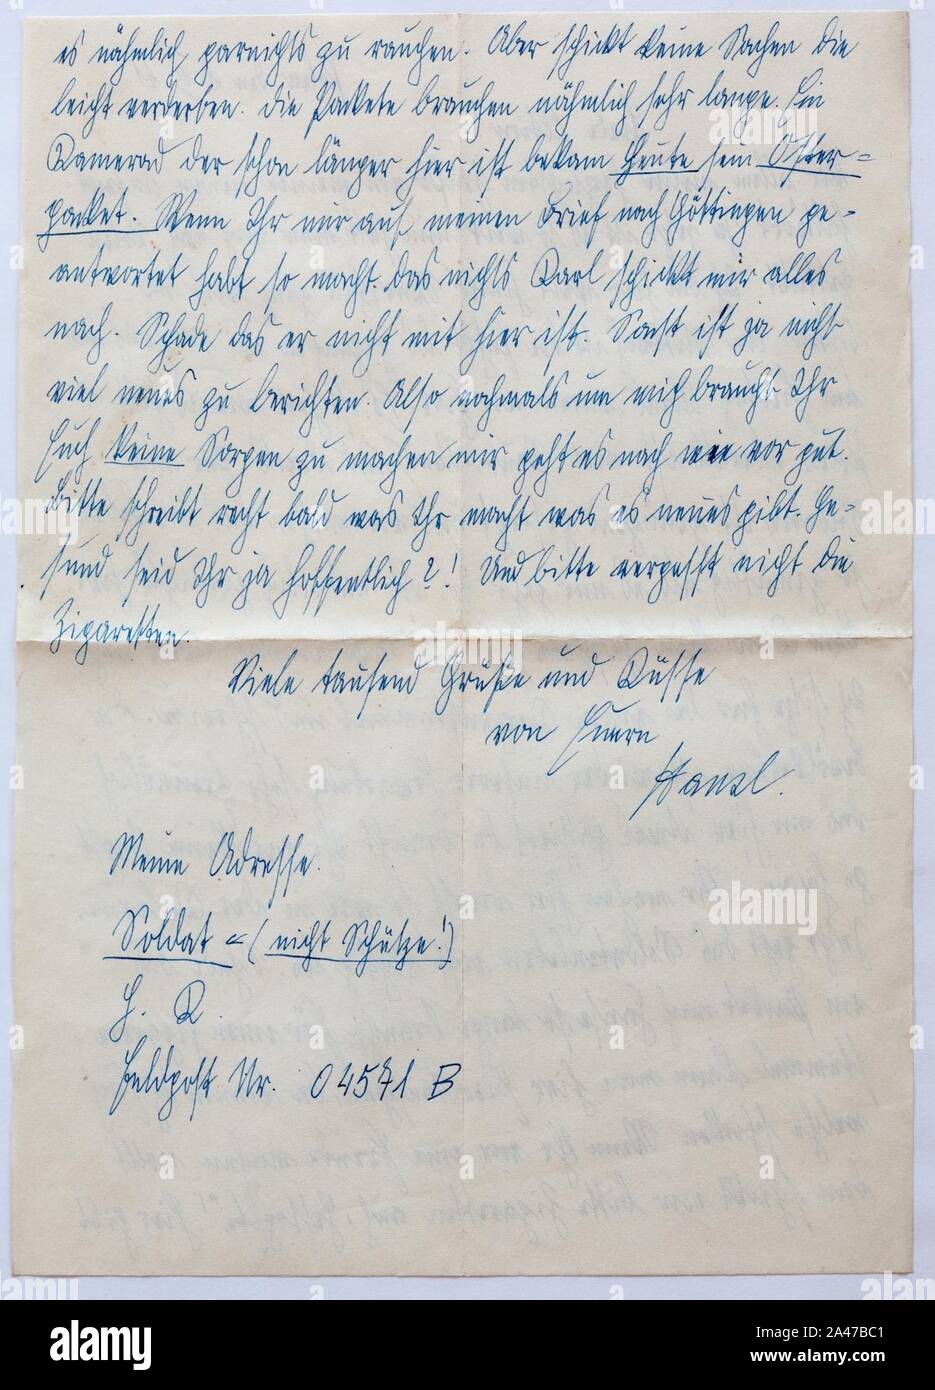 es nähmlich garnichts zu rauchen. Aber schickt keine Sachen die
leicht verderben. Die Packete brauchen nähmlich sehr lange. Ein
Kamerad der schon länger hier ist bekam heute sein Oster=
packet. Wenn Ihr mir auf meinen Brief nach Göttingen ge=
antwortet habt so macht das nichts Karl schickt mir alles
nach. Schade das er nicht mit hier ist. Sonst ist ja nicht
viel neues zu berichten. Also nochmals um mich braucht Ihr
Euch keine Sorgen zu machen mir geht es nach wie vor gut.
Bitte schreibt recht bald was Ihr macht was es neues gibt. Ge=
sund seid Ihr ja hoffentlich?! Und bitte vergesst nicht die
Zigaretten.
Viele tausend Grüße und Küsse
von Euern
Hansl.
Meine Adresse.
Soldat = (nicht Schütze!)
H. K.
Feldpost Nr. 04571 B
alamy
Image ID: 2A47BC1
www.alamy.com